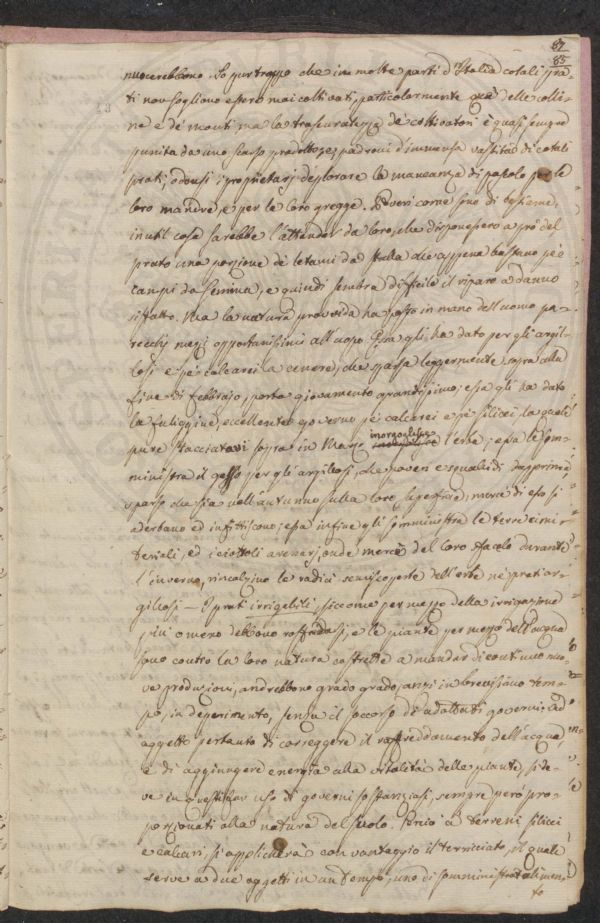 87
85
nuocerebbono. So pur troppo che in molte parti d'Italia cotali pra-
ti non sogliono essere mai coltivati, particolarmente que' delle colli-
ne e de' monti ma la trascuratezza de' coltivatori è quasi sempre
punita da uno scarso prodotto, e padroni d'immensa vastità di cotali
prati, odonsi i proprietarj deplorare la mancanza di pascolo per le
loro mandre, e per le loro gregge. Poveri come sono di bestiame,
inutil cosa sarebbe l'attender da loro, che disponessero a prò del
prato una porzione de' letami da stalla che appena bastano pe'
campi da sementa, e quindi sembra difficile il riparo a danno
siffatto. Ma la natura provvida ha posto in mano dell'uomo pa-
recchj mezzi opportunissimi all'uopo. Essa gli ha dato per gli argil-
losi e pe' calcarei la cenere, che sparsa leggermente sopra alla
fine di febbrajo, porta giovamento grandissimo; essa gli ha dato
la fuliggine, eccellente governo pe' calcarei e pe' silicei, la quale
pure stacciatavi sopra in Marzo inorgoglisce l'erbe; essa le som-
ministra il gesso per gli argillosi, che poveri e squalidi dapprima,
sparso che sia nell'autunno sulla loro superficie, mercè di esso si
aderbano ed infittiscono; essa infine gli somministra le terre cimi-
teriali, ed i ciottoli arenarj, onde mercè del loro sfacelo durante
l'inverno, rincalzino le radici semiscoperte dell'erbe ne' prati ar-
gillosi — I prati irrigabili, siccome per mezzo della irrigazione
più o meno debbono raffreddarsi, e le piante per mezzo dell'acqua
sono contro la loro natura costrette a mandar di continuo nuo-
ve produzioni, andrebbono grado grado, anzi in brevissimo tem-
po, in deperimento, senza il soccorso di adattati governi; ad
oggetto pertanto di correggere il raffreddamento dell'acqua,
e di aggiungere energia alla vitalità delle piante, si de-
ve in questi far uso di governi sostanziosi, sempre però pro-
porzionati alla natura del suolo. Perciò a' terreni silicei
e calcari, si applicherà con vantaggio il terricciato, il quale
serve a due oggetti in un tempo, uno di somministrar alimen-
to